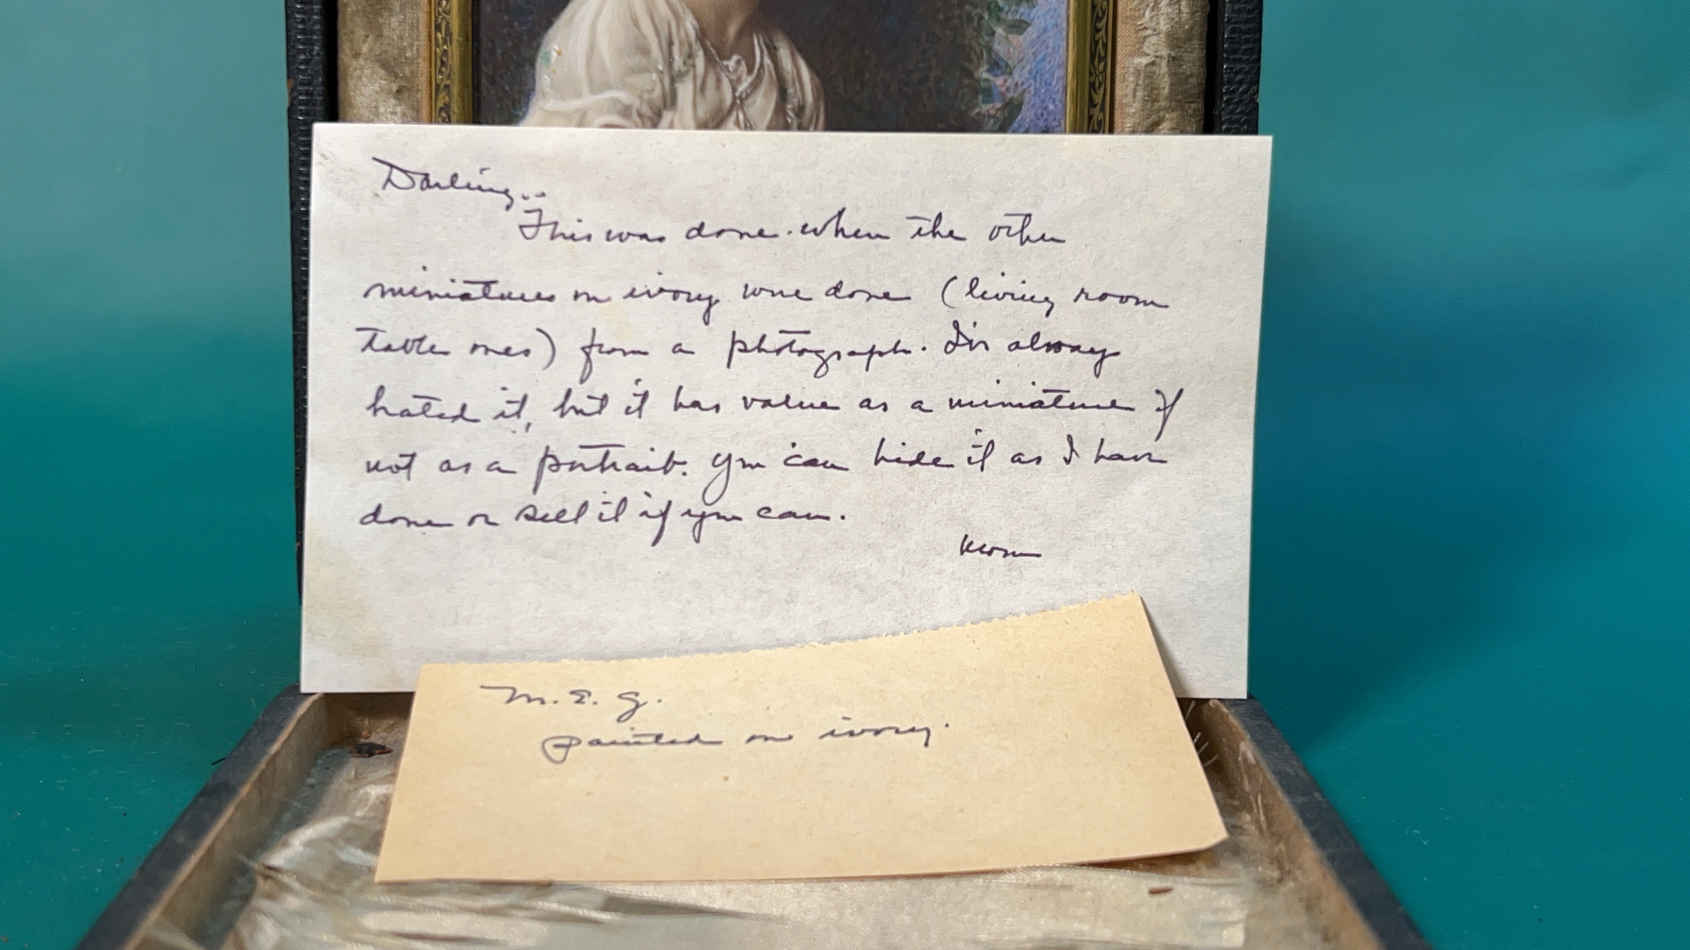 Darling..
This was done when the other
miniatures on ivory were done (living room
table ones) from a photograph. I've always
hated it, but it has value as a miniature if
not as a portrait. You can hide it as I have
done or sell it if you can.
Mom
M.E.G.
painted on ivory.